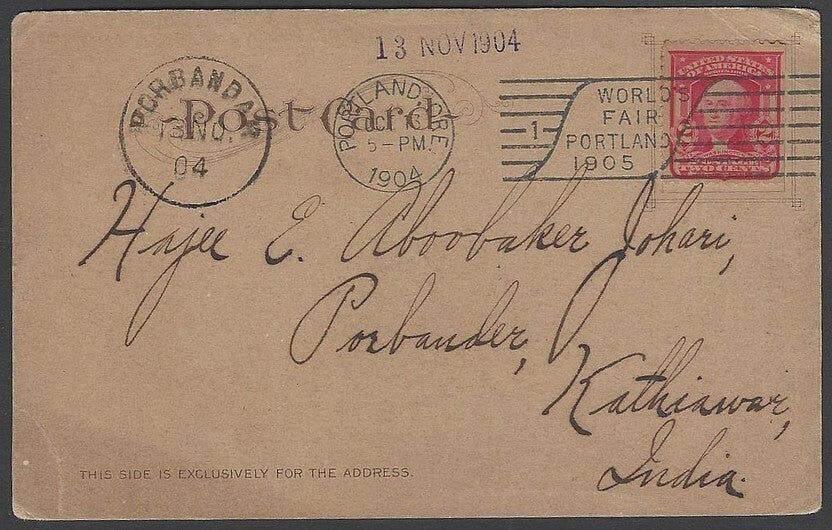 13 NOV 1904
PORBANDAR
13 NO.
04
Post Card
PORTLAND, ORE
5-PM
1904
1
WORLD'S
FAIR
PORTLAND
1905
UNITED STATES
OF AMERICA
TWO CENTS
Hajee E. Aboobaker Johari,
Porbander,
Kathiawar,
India.
THIS SIDE IS EXCLUSIVELY FOR THE ADDRESS.